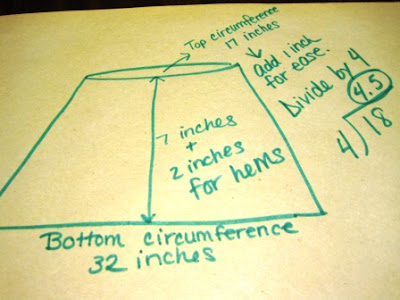 Top circumference
17 inches
add 1 inch
for ease.
Divide by 4
4.5
4)18
7 inches
+
2 inches
for hems
Bottom circumference
32 inches